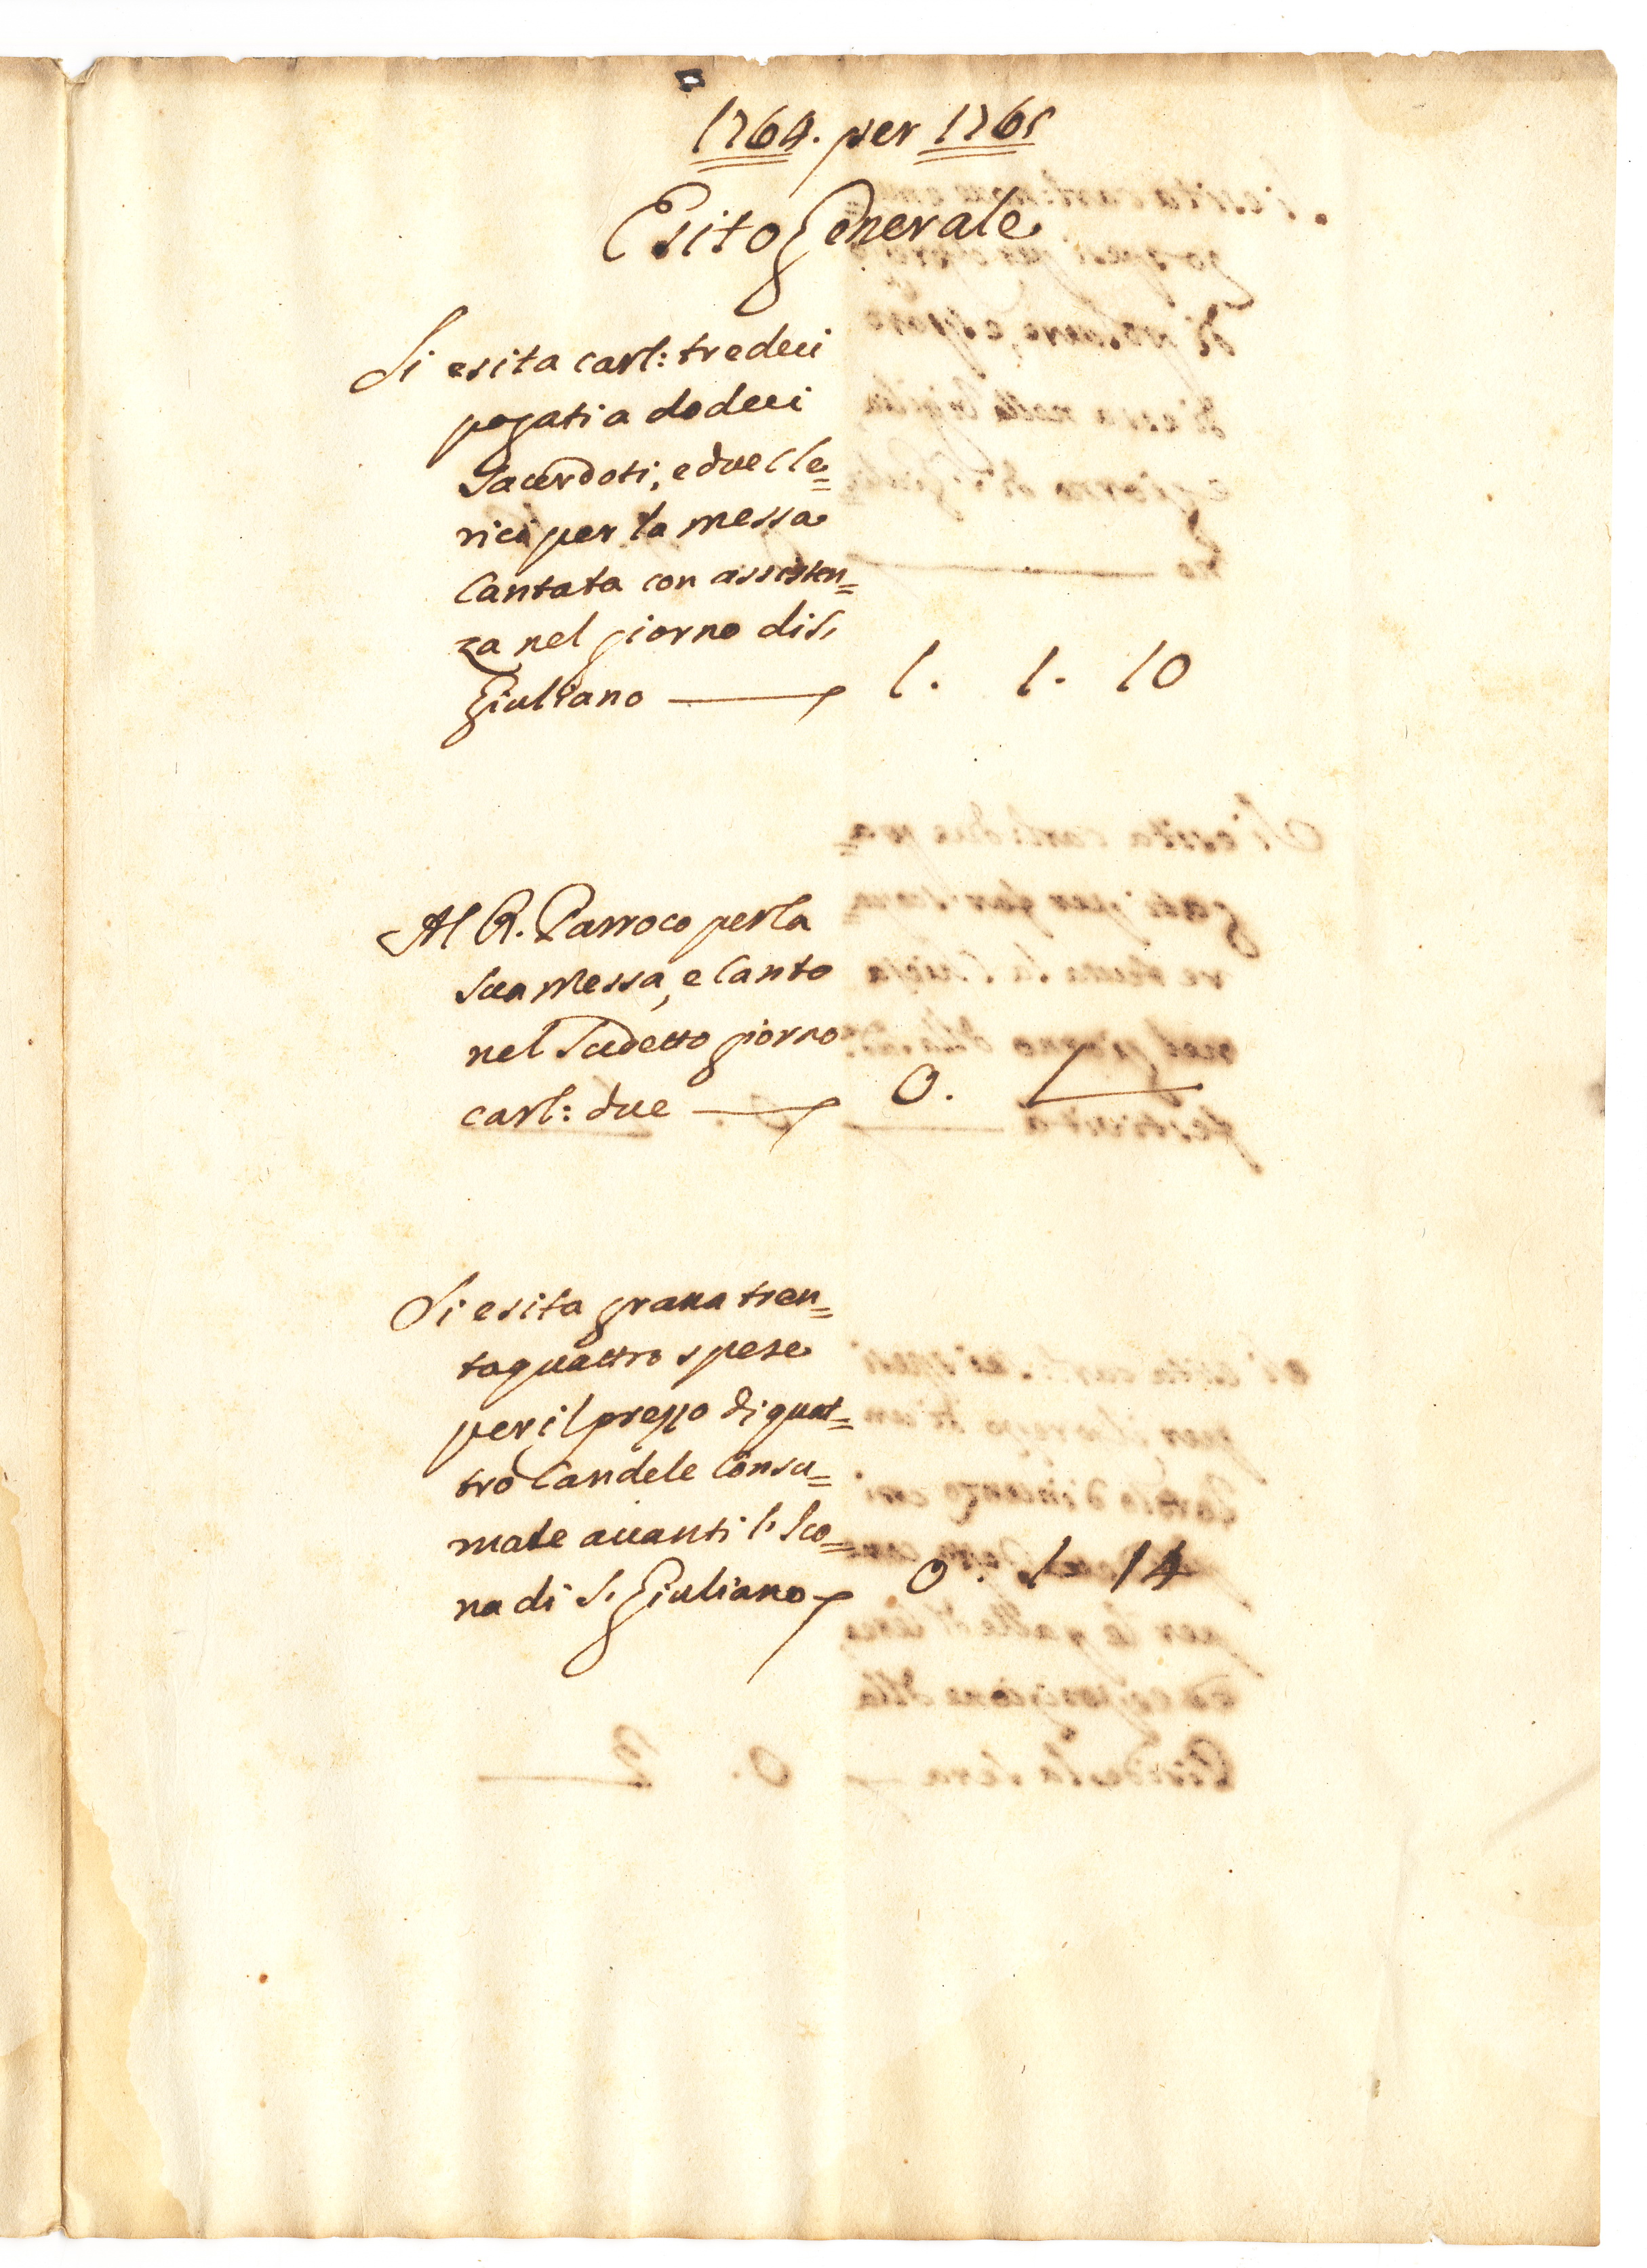 1764. per 1765
Esito Generale
Si esita carl: tredeci
pagati a dodeci
Sacerdoti, e due Cle=
rici per la messa
Cantata con assisten=
za nel giorno di S.
Giuliano — 1. 1. 10
Al R. Parroco per la
sua Messa, e Canto
nel Sudetto giorno
carl: due — 0. 1 —
Si esita grana tren=
taquattro spese
per il prezzo di quat=
tro Candele Consu=
mate avanti l'Ico=
na di S. Giuliano 0. 1. 14